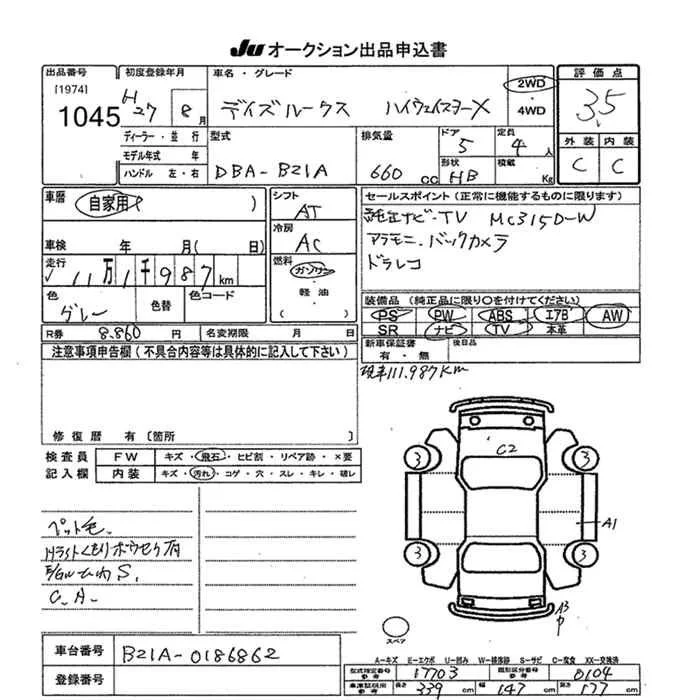 JU オークション出品申込書
出品番号 初度登録年月 車名・グレード 評価点
[1974]
1045 H27 8月 デイズルークス ハイウェイスターX 2WD・4WD 3.5
ディーラー・並行 型式 排気量 ドア 定員 外装 内装
モデル年式 年 DBA-B21A 660cc 5 4人 C C
ハンドル 左・右 形状 HB 積載 Kg
車歴 自家用 ( ) シフト AT
セールスポイント (正常に機能するものに限ります)
純正ナビ・TV MC315D-W
アラモニ・バックカメラ
ドラレコ
車検 年 月(日) 冷房 AC
走行 11万1千987km 燃料 ガソリン・軽油・( )
色 グレー 色替 色コード
装備品 (純正品に限り○を付けてください)
PS PW ABS エアB AW
SR ナビ TV 本革
R券 8.860円 名変期限 月 日
新車保証書 有・無 後日品
注意事項申告欄(不具合内容等は具体的に記入して下さい)
現車111.987km
修復歴 有 〔箇所 〕
検査員 FW キズ・飛石・ヒビ割・リペア跡・×要
記入欄 内装 キズ・汚れ・コゲ・穴・スレ・キレ・破レ
C2
3 3
A1
3 3
A3
P
スペア
ペット毛
C.A.
車台番号 B21A-0186862
登録番号
A-キズ E-エクボ U-凹み W-補修跡 S-サビ C-腐食 XX-交換済
型式指定番号 参考 17703 類別区分番号 参考 0104
車庫証明用 参考 長さ 339cm 幅 147cm 高さ 177cm